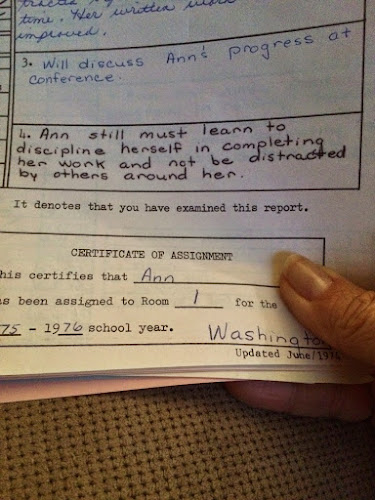 time. Her written work
improved.
3. Will discuss Ann's progress at
conference.
4. Ann still must learn to
discipline herself in completing
her work and not be distracted
by others around her.
It denotes that you have examined this report.
CERTIFICATE OF ASSIGNMENT
his certifies that Ann
as been assigned to Room 1 for the
75 - 1976 school year.
Washingto
Updated June/197